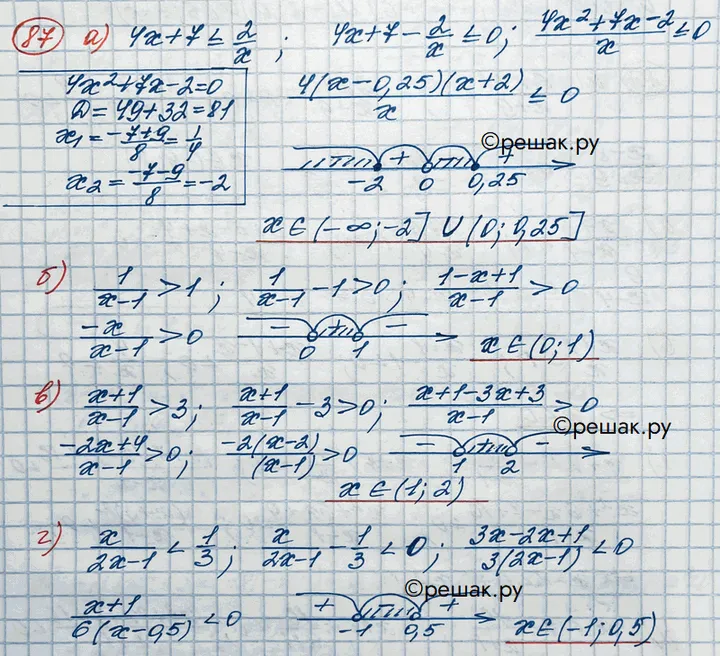 87 а) 4x+7 ≤ 2/x ; 4x+7 - 2/x ≤ 0; (4x²+7x-2)/x ≤ 0
4x²+7x-2=0
D=49+32=81
x₁ = (-7+9)/8 = 1/4
x₂ = (-7-9)/8 = -2
4(x-0,25)(x+2)/x ≤ 0
©решак.ру
+ +
-2 0 0,25
x∈(-∞;-2] ∪ (0; 0,25]
б) 1/(x-1) > 1 ; 1/(x-1) - 1 > 0 ; (1-x+1)/(x-1) > 0
-x/(x-1) > 0 - + -
0 1 x∈(0;1)
в) (x+1)/(x-1) > 3; (x+1)/(x-1) - 3 > 0; (x+1-3x+3)/(x-1) > 0
©решак.ру
(-2x+4)/(x-1) > 0; -2(x-2)/(x-1) > 0 - + -
1 2
x∈(1;2)
г) x/(2x-1) < 1/3 ; x/(2x-1) - 1/3 < 0 ; (3x-2x+1)/3(2x-1) < 0
©решак.ру
(x+1)/6(x-0,5) < 0 + +
-1 0,5 x∈(-1;0,5)